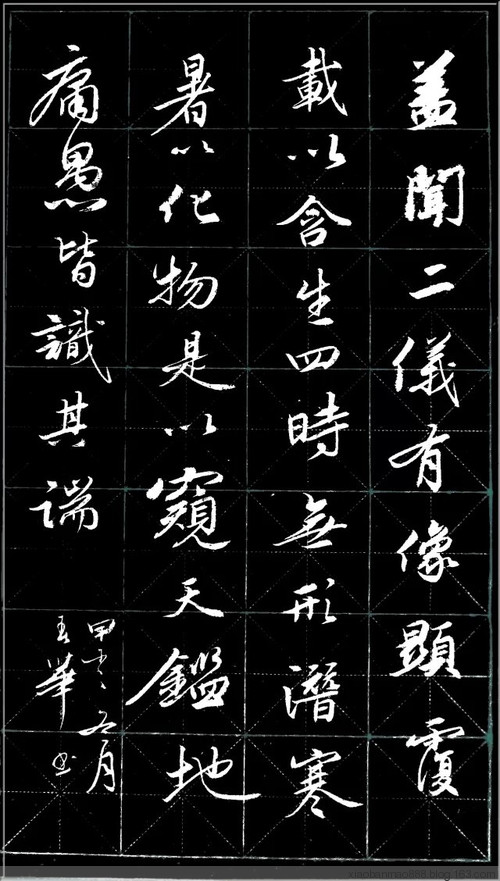 盖聞二儀有像顯覆
載以含生四時無形潛寒
暑以化物是以窺天鑑地
庸愚皆識其端
甲 五月
王華书